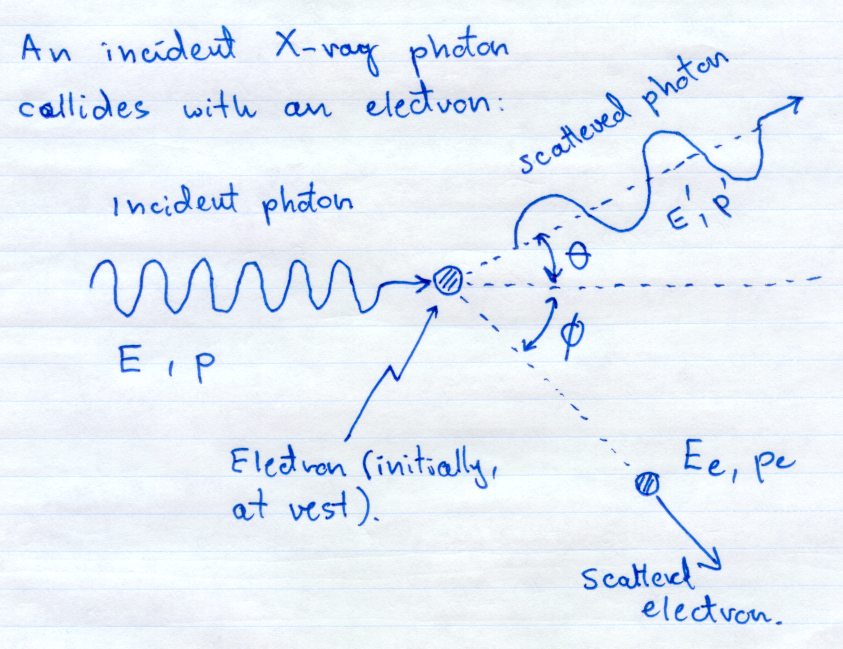 An incident X-ray photon
collides with an electron:
scattered photon
Incident photon
E', p'
θ
ϕ
E, p
Electron (initially,
at rest).
Ee, pe
Scatterd
electron.